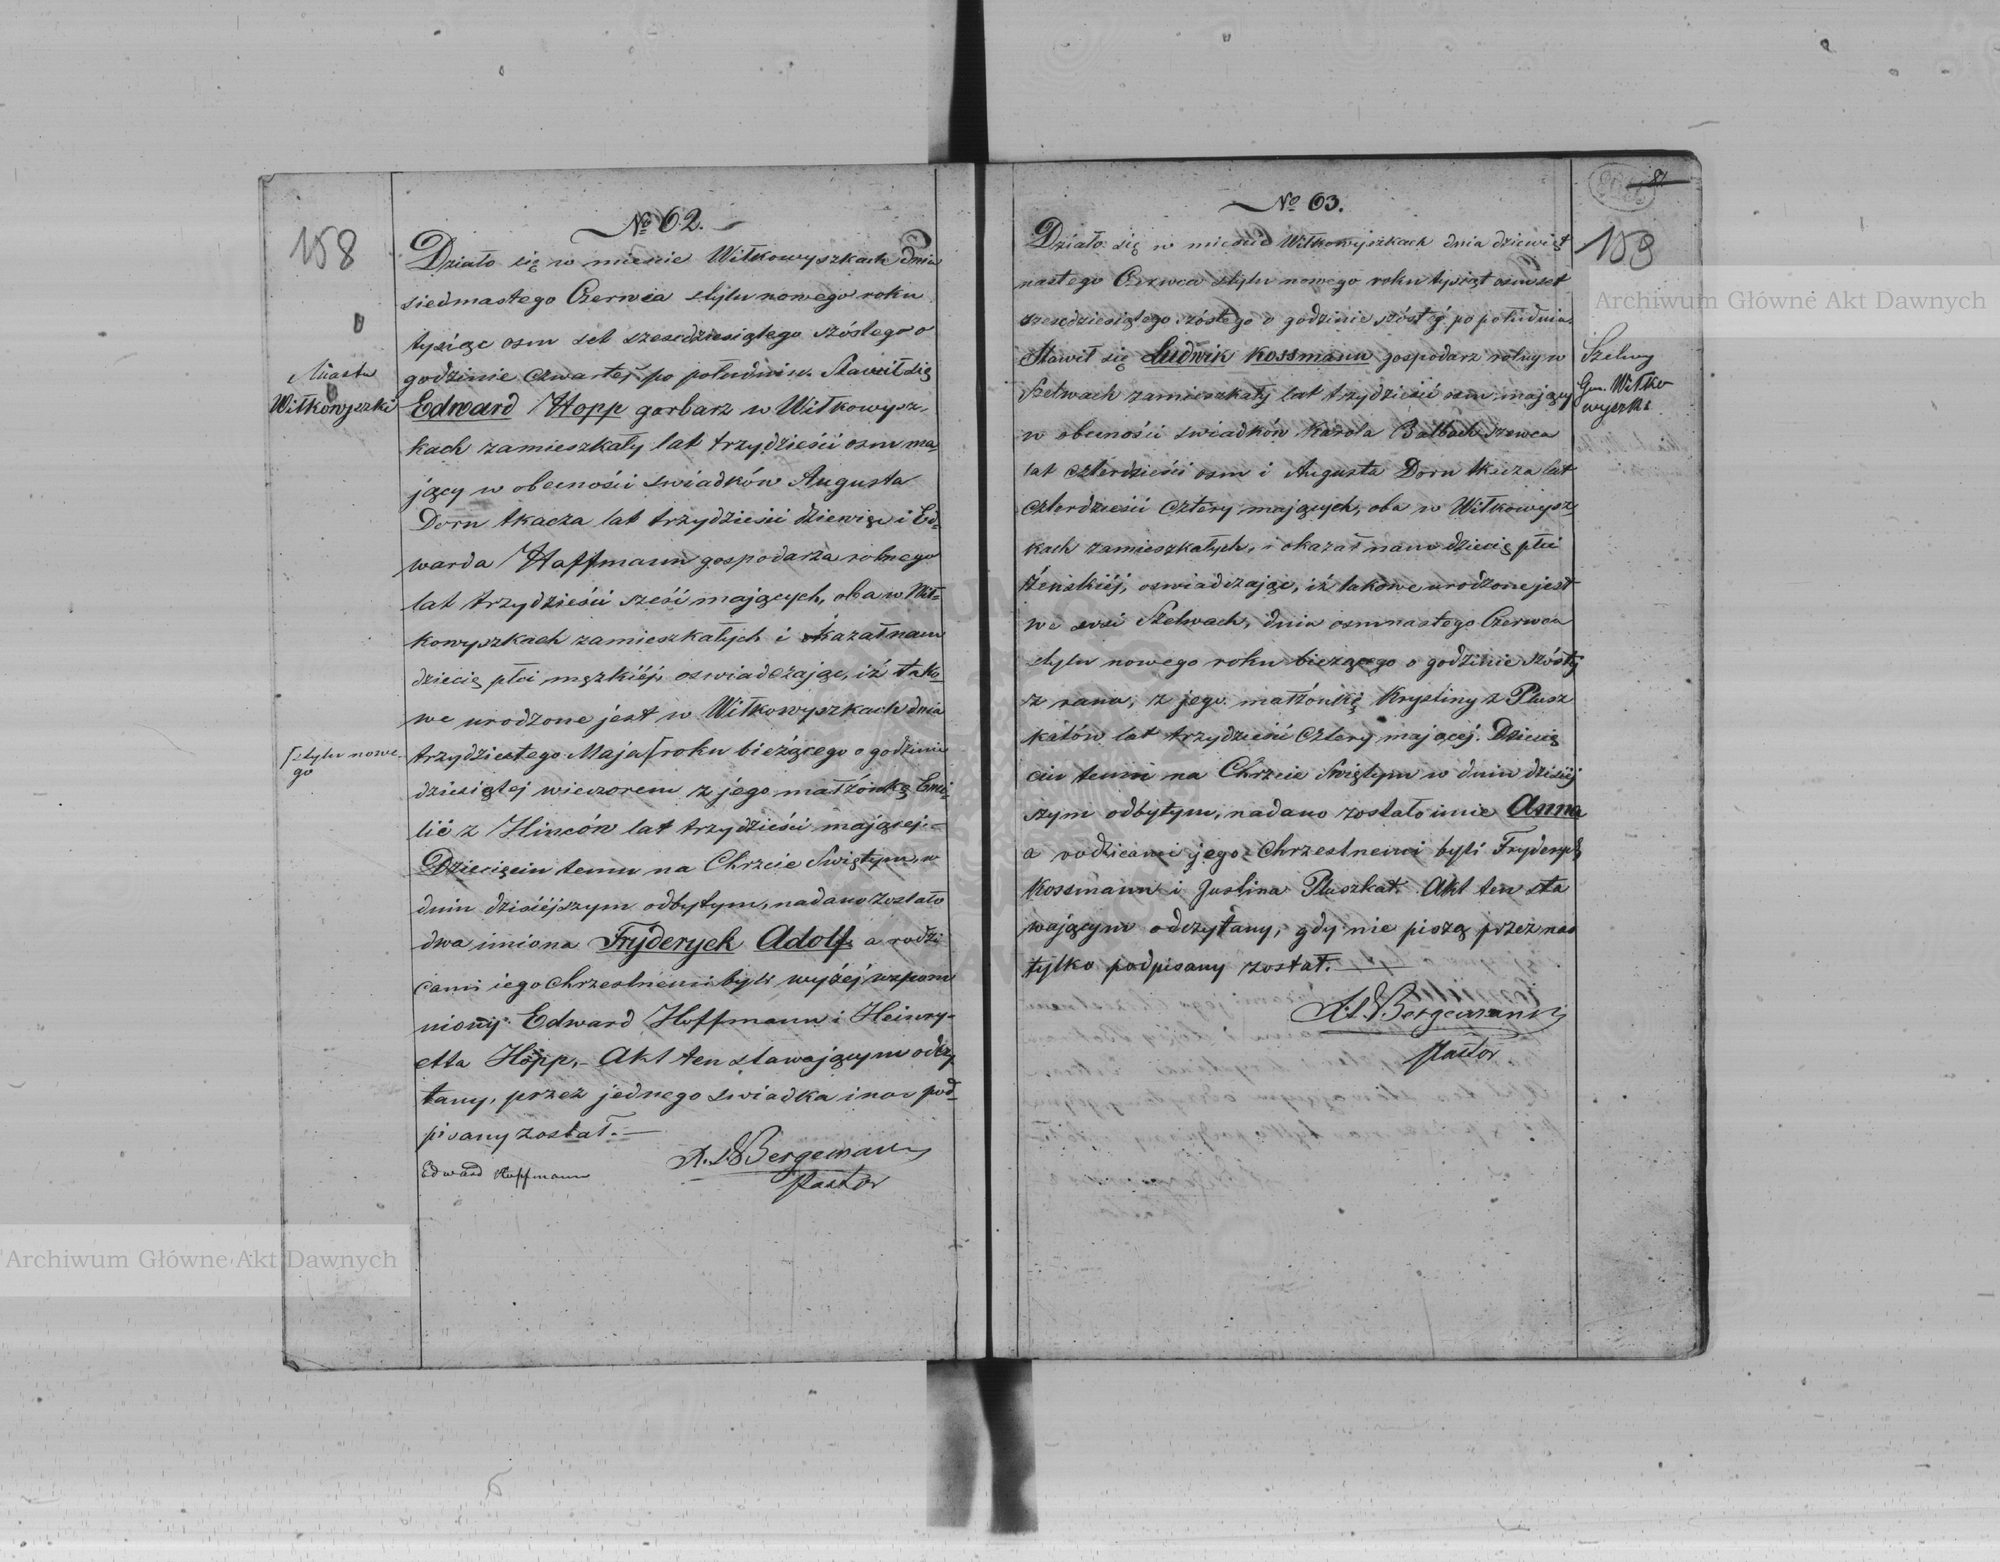 158
Miasta
Wiłkowyszki
[stylu nowe-
go
No 62.
Działo się w mieście Wiłkowyszkach dnia
siedmnastego Czerwca stylu nowego roku
tysiąc osm set szesćdziesiątego szóstego o
godzinie czwartej po południu. Stawił się
Edward Hopp garbarz w Wiłkowysz-
kach zamieszkały lat trzydzieści osm ma-
jący w obecności swiadków Augusta
Dorn tkacza lat trzydzieści dziewięć i Ed-
warda Hoffmann gospodarza rolnego
lat trzydzieści sześć mających, oba w Wił-
kowyszkach zamieszkałych i okazał nam
dziecię płci męzkiéj, oswiadczając, iż tako-
we urodzone jest w Wiłkowyszkach dnia
trzydziestego Maja [roku bieżącego o godzinie
dziesiątej wieczorem z jego małżonki Emi-
lii z Hinców lat trzydzieści mającej.-
Dziecięciu temu na Chrzcie Swiętym, w
dniu dzisiéjszym odbytym, nadano zostało
dwa imiona Fryderyck Adolf, a rodzi
cami iego chrzestnemi byli wyżéj wspom
niony Edward Hoffmann i Heinry-
etta Hopp.- Akt ten stawającym odczy
tany, przez jednego swiadka i nas pod-
pisany został.-
Edward Hoffmann
A. L. Bergemann
Pastor
81
159
Archiwum Główne Akt Dawnych
Szelwy
Gm. Wiłko-
wyszki
No 63.
Działo się w mieście Wiłkowyszkach dnia dziewięt
nastego Czerwca stylu nowego roku tysiąt osmset
szescdziesiątego szóstego o godzinie szóstéj po południu.
Stawił się Ludwik Kossmann gospodarz rolny w
Szelwach zamieszkały lat trzydzieści osm mający
w obecności swiadków Karola Balbach szewca
lat czterdzieści osm i Augusta Dorn tkacza lat
czterdzieści cztery mających, oba w Wiłkowysz-
kach zamieszkałych, i okazał nam dziecię płci
żenskiéj, oswiadczając, iż takowe urodzone jest
we wsi Szelwach, dnia osmnastego Czerwca
stylu nowego roku bieżącego o godzinie szóstéj
z rana, z jego małżonki Krystiny z Plusz
katów lat trzydzieści cztery mającej. Dziecię
ciu temu na Chrzcie Swiętym w dniu dzisiéj
szym odbytym, nadano zostało imie Anna
a rodzicami jego chrzestnemi byli Fryderyk
Kossmann i Justina Pluszkat. Akt ten sta
wającym odczytany, gdy nie piszą przez nas
tylko podpisany został.-
A. L. Bergemann
Pastor
Archiwum Główne Akt Dawnych